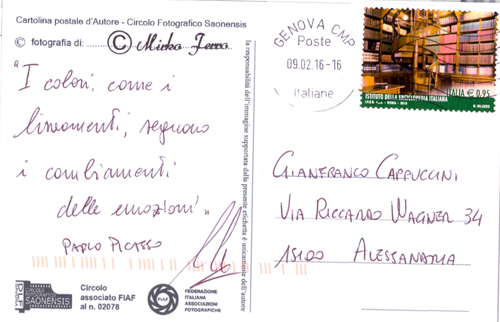 Cartolina postale d'Autore - Circolo Fotografico Saonensis
© fotografia di: ........ © Mirko
"I colori, come i
lineamenti, seguono
i cambiamenti
delle emozioni"
PABLO PICASSO
CIRCOLO
FOTOGRAFICO
SAONENSIS
Circolo
associato FIAF
al n. 02078
FIAF
FEDERAZIONE
ITALIANA
ASSOCIAZIONI
FOTOGRAFICHE
la responsabilità dell'immagine supportata dalla presente etichetta è unicamente dell'autore
GENOVA CMP
Poste
09.02.16-16
Italiane
ISTITUTO DELLA ENCICLOPEDIA ITALIANA
ITALIA € 0,95
GIANFRANCO CAPPUCCINI
VIA RICCARDO WAGNER 34
15100 ALESSANDRIA